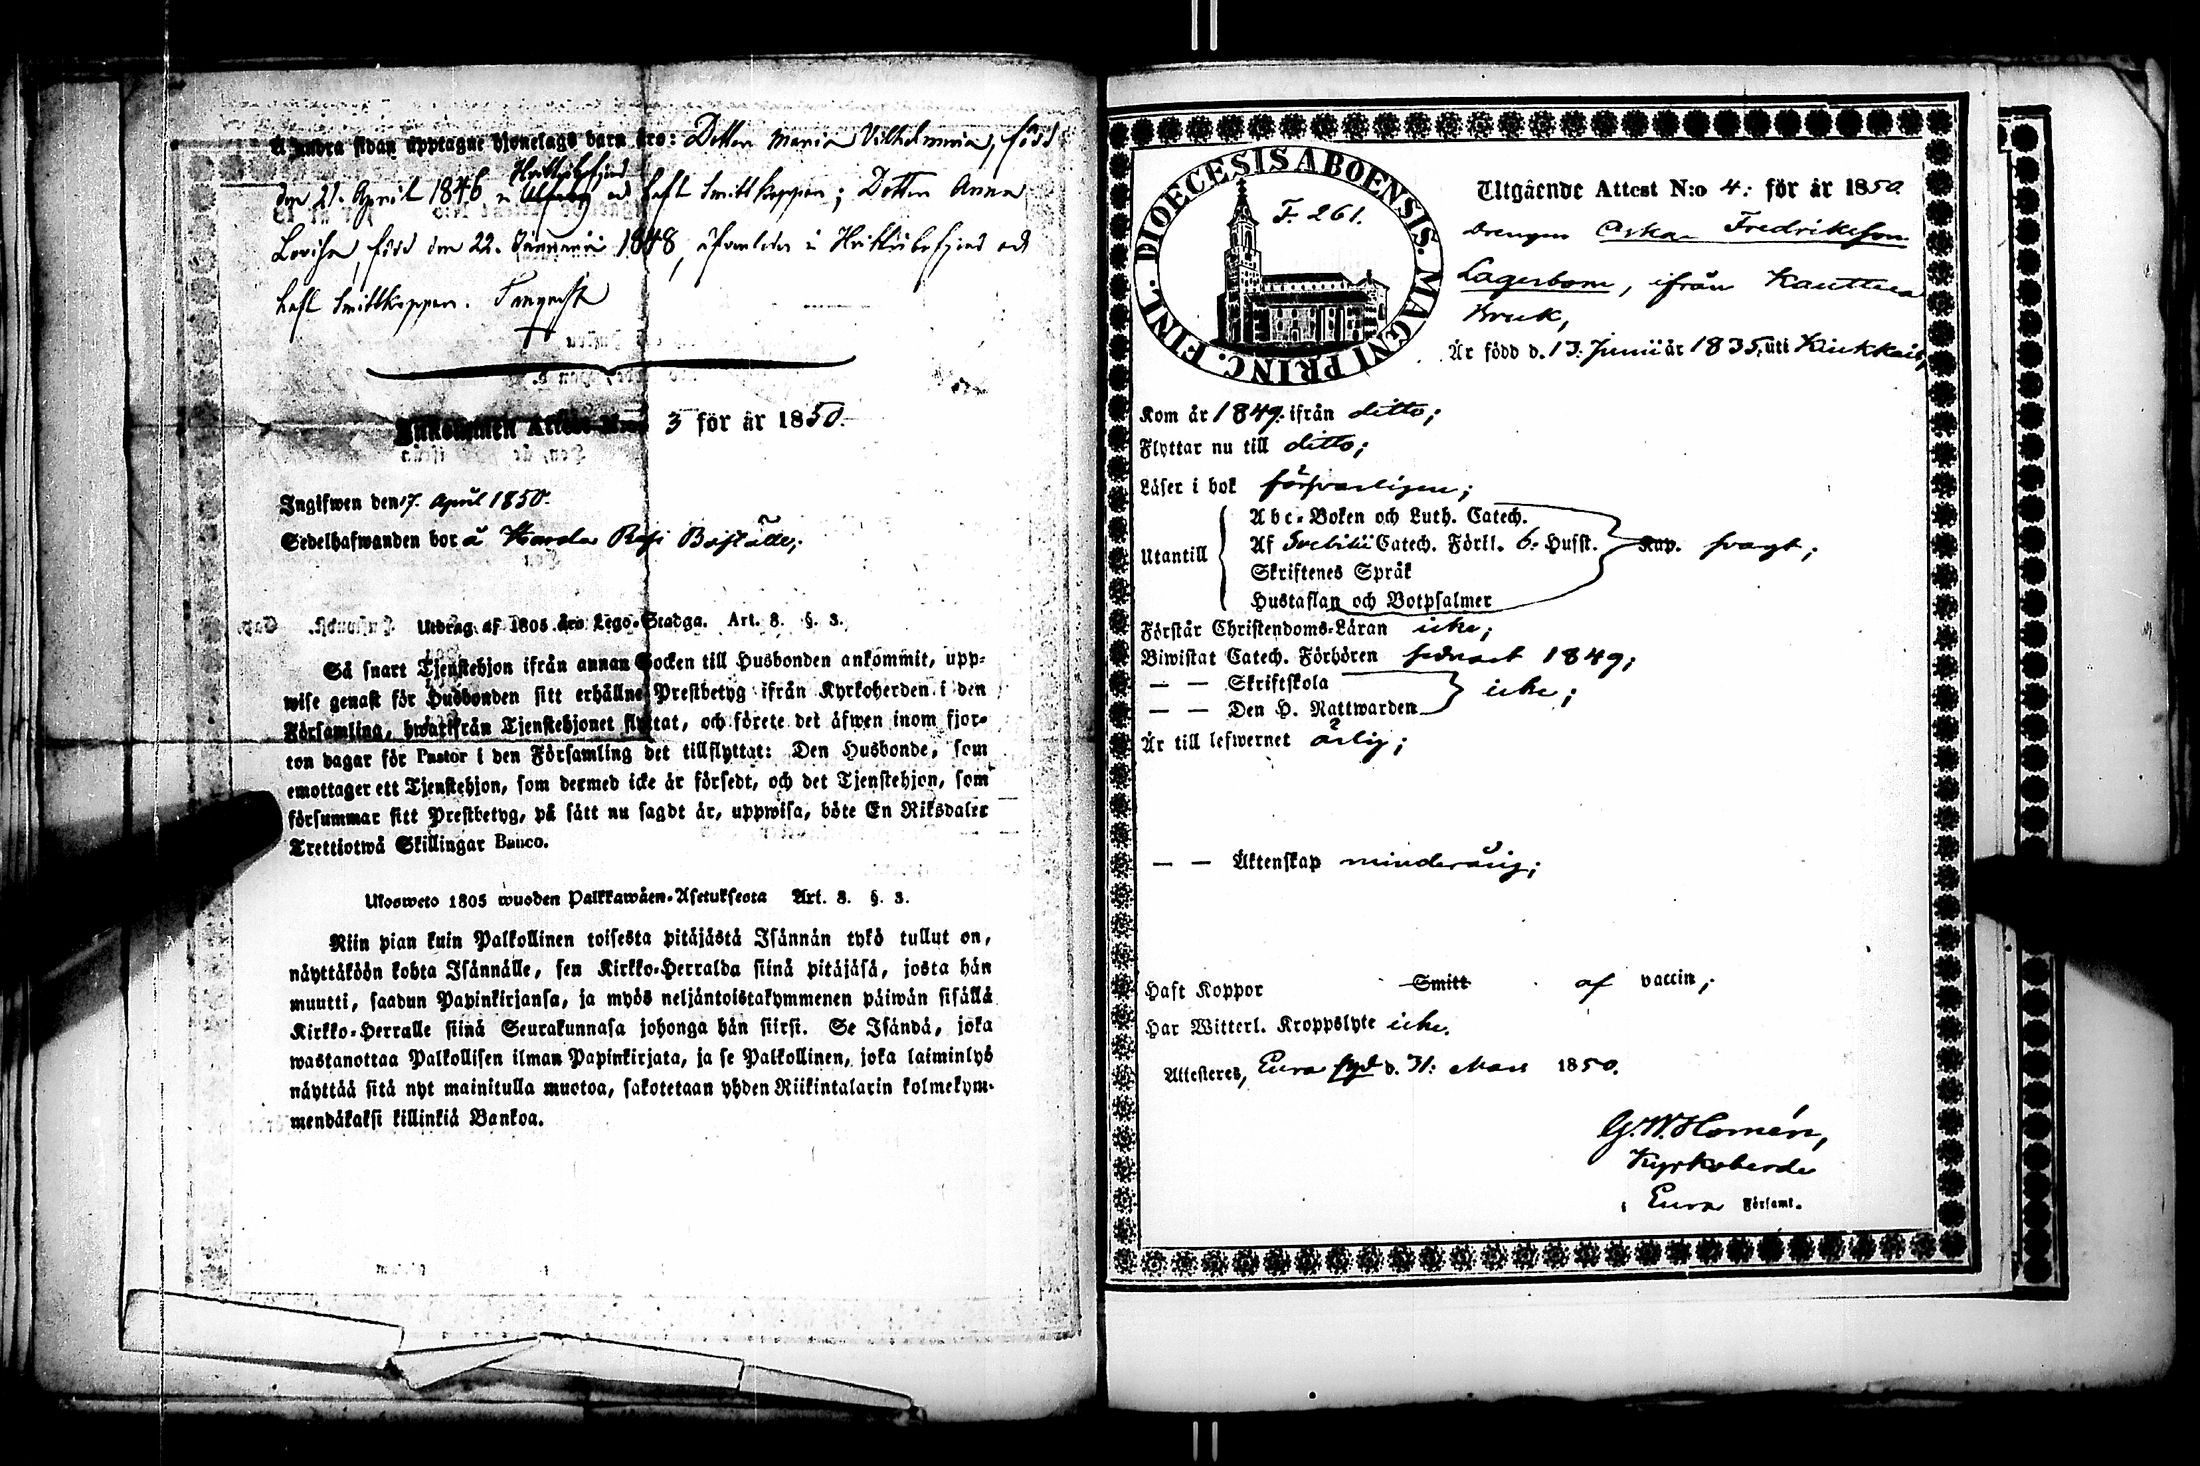 å andra sidan upptagne hjonelags barn äro: Dottern Maria Vilhelmina, född
den 21. April 1846 och haft Smittkoppor; Dotter Anna
Lovisa, född den 22. Januarii 1848, och
haft Smittkoppor.
Inkommen Attest N:o 3 för år 1850.
Ingifwen den 17. April 1850.
Sedelhafwanden bor å Boställe;
Utdrag af 1805 års Lego-Stadga. Art. 8. §. 3.
Så snart Tjenstehjon ifrån annan Socken till Husbonden ankommit, upp-
wise genast för Husbonden sitt erhållne Prestbetyg ifrån Kyrkoherden i den
Församling, hwarifrån Tjenstehjonet flyttat, och förete det äfwen inom fjor-
ton dagar för Pastor i den Församling det tillflyttat: Den Husbonde, som
emottager ett Tjenstehjon, som dermed icke är försedt, och det Tjenstehjon, som
försummar sitt Prestbetyg, på sätt nu sagdt är, uppwisa, böte En Riksdaler
Trettiotwå Skillingar Banco.
Ulosweto 1805 wuoden Palkkawäen-Asetuksesta Art. 8. §. 3.
Niin pian kuin Palkollinen toisesta pitäjästä Isännän tykö tullut on,
näyttäköön kohta Isännälle, sen Kirkko-Herralda siinä pitäjäsä, josta hän
muutti, saadun Papinkirjansa, ja myös neljäntoistakymmenen päiwän sisällä
Kirkko-Herralle siinä Seurakunnasa johonga hän siirsi. Se Isändä, joka
wastanottaa Palkollisen ilman Papinkirjata, ja se Palkollinen, joka laiminlyö
näyttää sitä nyt mainitulla muotoa, sakotetaan yhden Riikintalarin kolmekym-
mendäkaksi killinkiä Bankoa.
DIOECESIS ABOENSIS. MAGNI PRINC. FINL.
F. 261.
Utgående Attest N:o 4: för år 1850.
Drengen Oskar Fredriksson
Lagerbom, ifrån Kauttua
Bruk,
Är född d. 13. Junii år 1835, uti Kiukkais,
Kom år 1849. ifrån ditto;
Flyttar nu till ditto;
Läser i bok försvarligen;
Utantill
Abc-Boken och Luth. Catech.
Af Svebilii Catech. Förkl. 6. Hufst. Kap. svagt;
Skriftenes Språk
Hustaflan och Botpsalmer
Förstår Christendoms-Läran icke;
Biwistat Catech. Förhören sednast 1849;
— — Skriftskola
icke;
— — Den H. Nattwarden
Är till lefwernet ärlig;
— — Äktenskap minderårig;
Haft Koppor Smitt af vaccin;
Har Witterl. Kroppslyte icke.
Attesteres, Eura d. 31: Mars 1850.
G. W. Homén,
Kyrkoherde
i Eura Församl.